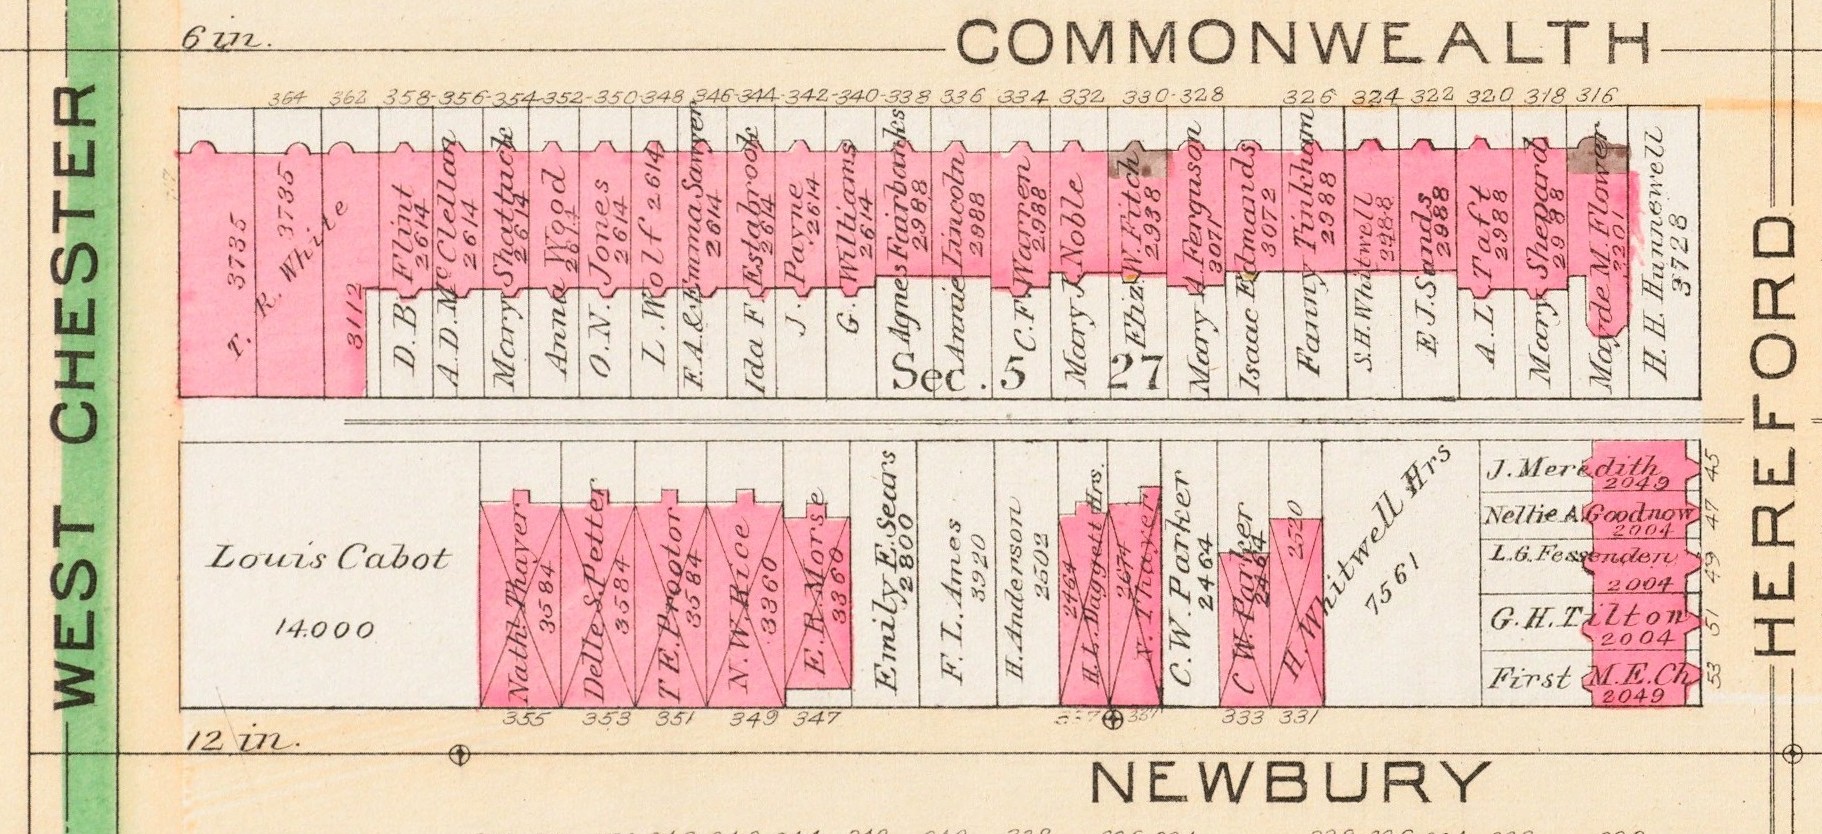 6 in.
COMMONWEALTH
364 362 358 356 354 352 350 348 346 344 342 340 338 336 334 332 330 328 326 324 322 320 318 316
WEST CHESTER
HEREFORD
T. R. White
3735
3735
3112
D. B. Flint
2614
A. D. McClellan
2614
Mary Shattuck
2614
Anna Wood
2614
O. N. Jones
2614
L. Wolf 2614
F. A. & Emma Sawyer
2614
Ida F. Estabrook
2614
J. Payne
2614
G. Williams
2614
Agnes Fairbanks
2988
Annie Lincoln
2988
C. F. Warren
2988
Mary J. Noble
Ehz. W. Fitch
2938
Mary A Ferguson
3071
Isaac Edmands
3072
Fanny Tinkham
2988
S. H. Whitwell
2988
E J. Sands
2988
A. L. Taft
2988
Mary Shepard
2988
Mayde M. Flower
3201
H. H. Hunnewell
3728
Sec. 5 27
Louis Cabot
14000
Nathl Thayer
3584
Delle S. Petter
3584
T E. Proctor
3584
N. W. Rice
3360
E. R. Morse
3360
Emily E. Sears
2800
F. L. Ames
3920
H. Anderson
2502
H. L. Daggett Hrs.
2464
N. Thayer
2674
C. W. Parker
2464
C W. Parker
2464
2520
H. Whitwell Hrs
7561
J. Meredith
2049
45
Nellie A. Goodnow
2004
47
L. G. Fessenden
2004
49
G. H. Tilton
2004
51
First M. E. Ch
2049
53
355 353 351 349 347 337 333 331
12 in.
NEWBURY